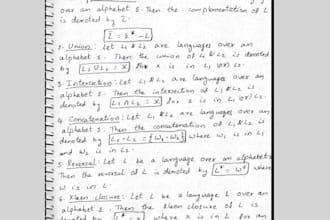 over an alphabet Σ. Then the complementation of L
is denoted by L̅.
L̅ = Σ* - L
2. Union: Let L1 & L2 are languages over an
alphabet Σ. Then the union of L1 & L2 is denoted
by L1 ∪ L2 = X for x is in L1 (or) L2.
3. Intersection: Let L1 & L2 are languages over an
alphabet Σ. Then the intersection of L1 & L2 is
denoted by L1 ∩ L2 = X for x is in L1 L2.
4. Concatenation: Let L1 & L2 are languages over an
alphabet Σ. Then the concatenation of L1 & L2 is
denoted by L1 · L2 = {W1 · W2} where w1 is in L1
and W2 is in L2.
5. Reversal: Let L be a language over an alphabet Σ
Then the reversal of L is denoted by where
W is in L.
6. Kleen closure: Let L be a language L over an
alphabet Σ. Then the Kleen closure of L is
where x is in L for an